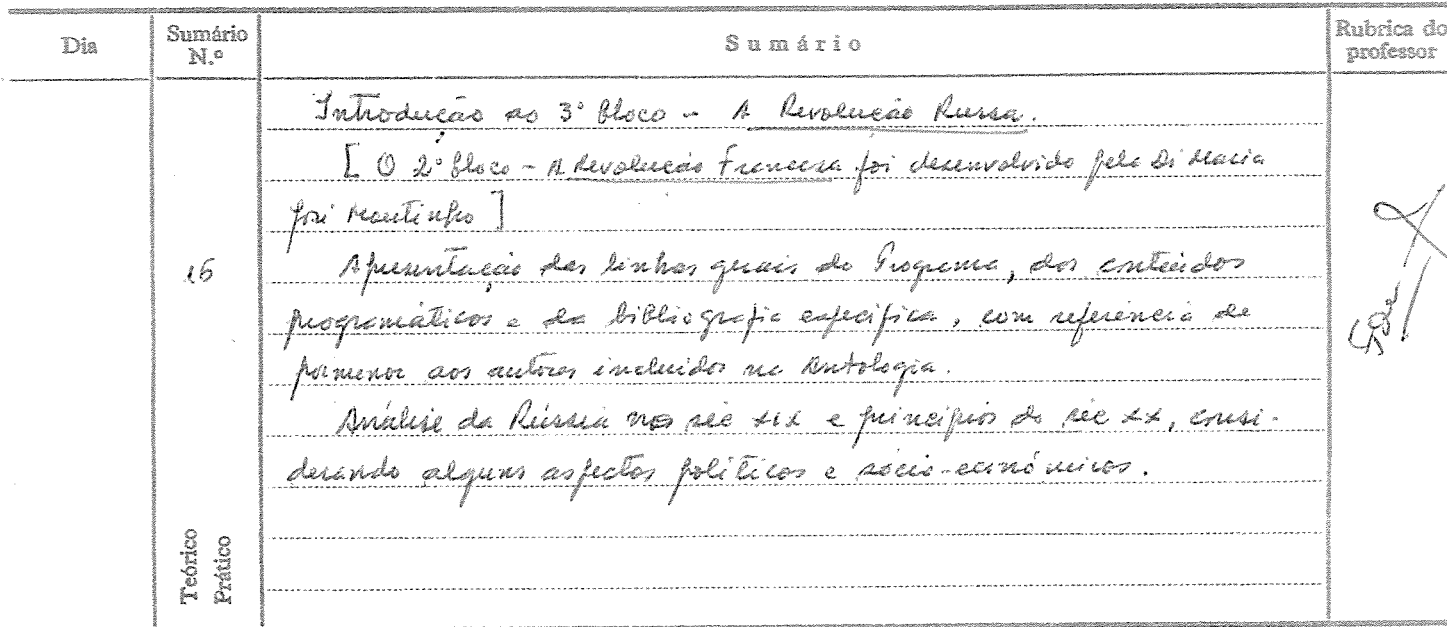 Dia
Sumário N.º
Sumário
Rubrica do professor
Introdução ao 3º bloco - A Revolução Russa.
[ O 2º bloco - A Revolução Francesa foi desenvolvido pela Drª Maria
José Moutinho ]
16
Apresentação das linhas gerais do Programa, dos conteúdos
programáticos e da bibliografia específica, com referência de
pormenor aos autores incluídos na Antologia.
Análise da Rússia nos séc XIX e princípios do séc XX, consi-
derando alguns aspectos políticos e sócio-económicos.
Teórico
Prático